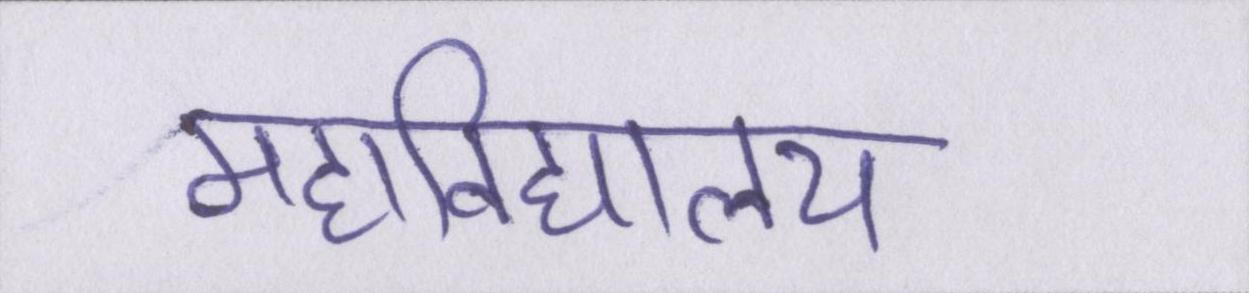 महाविद्यालय